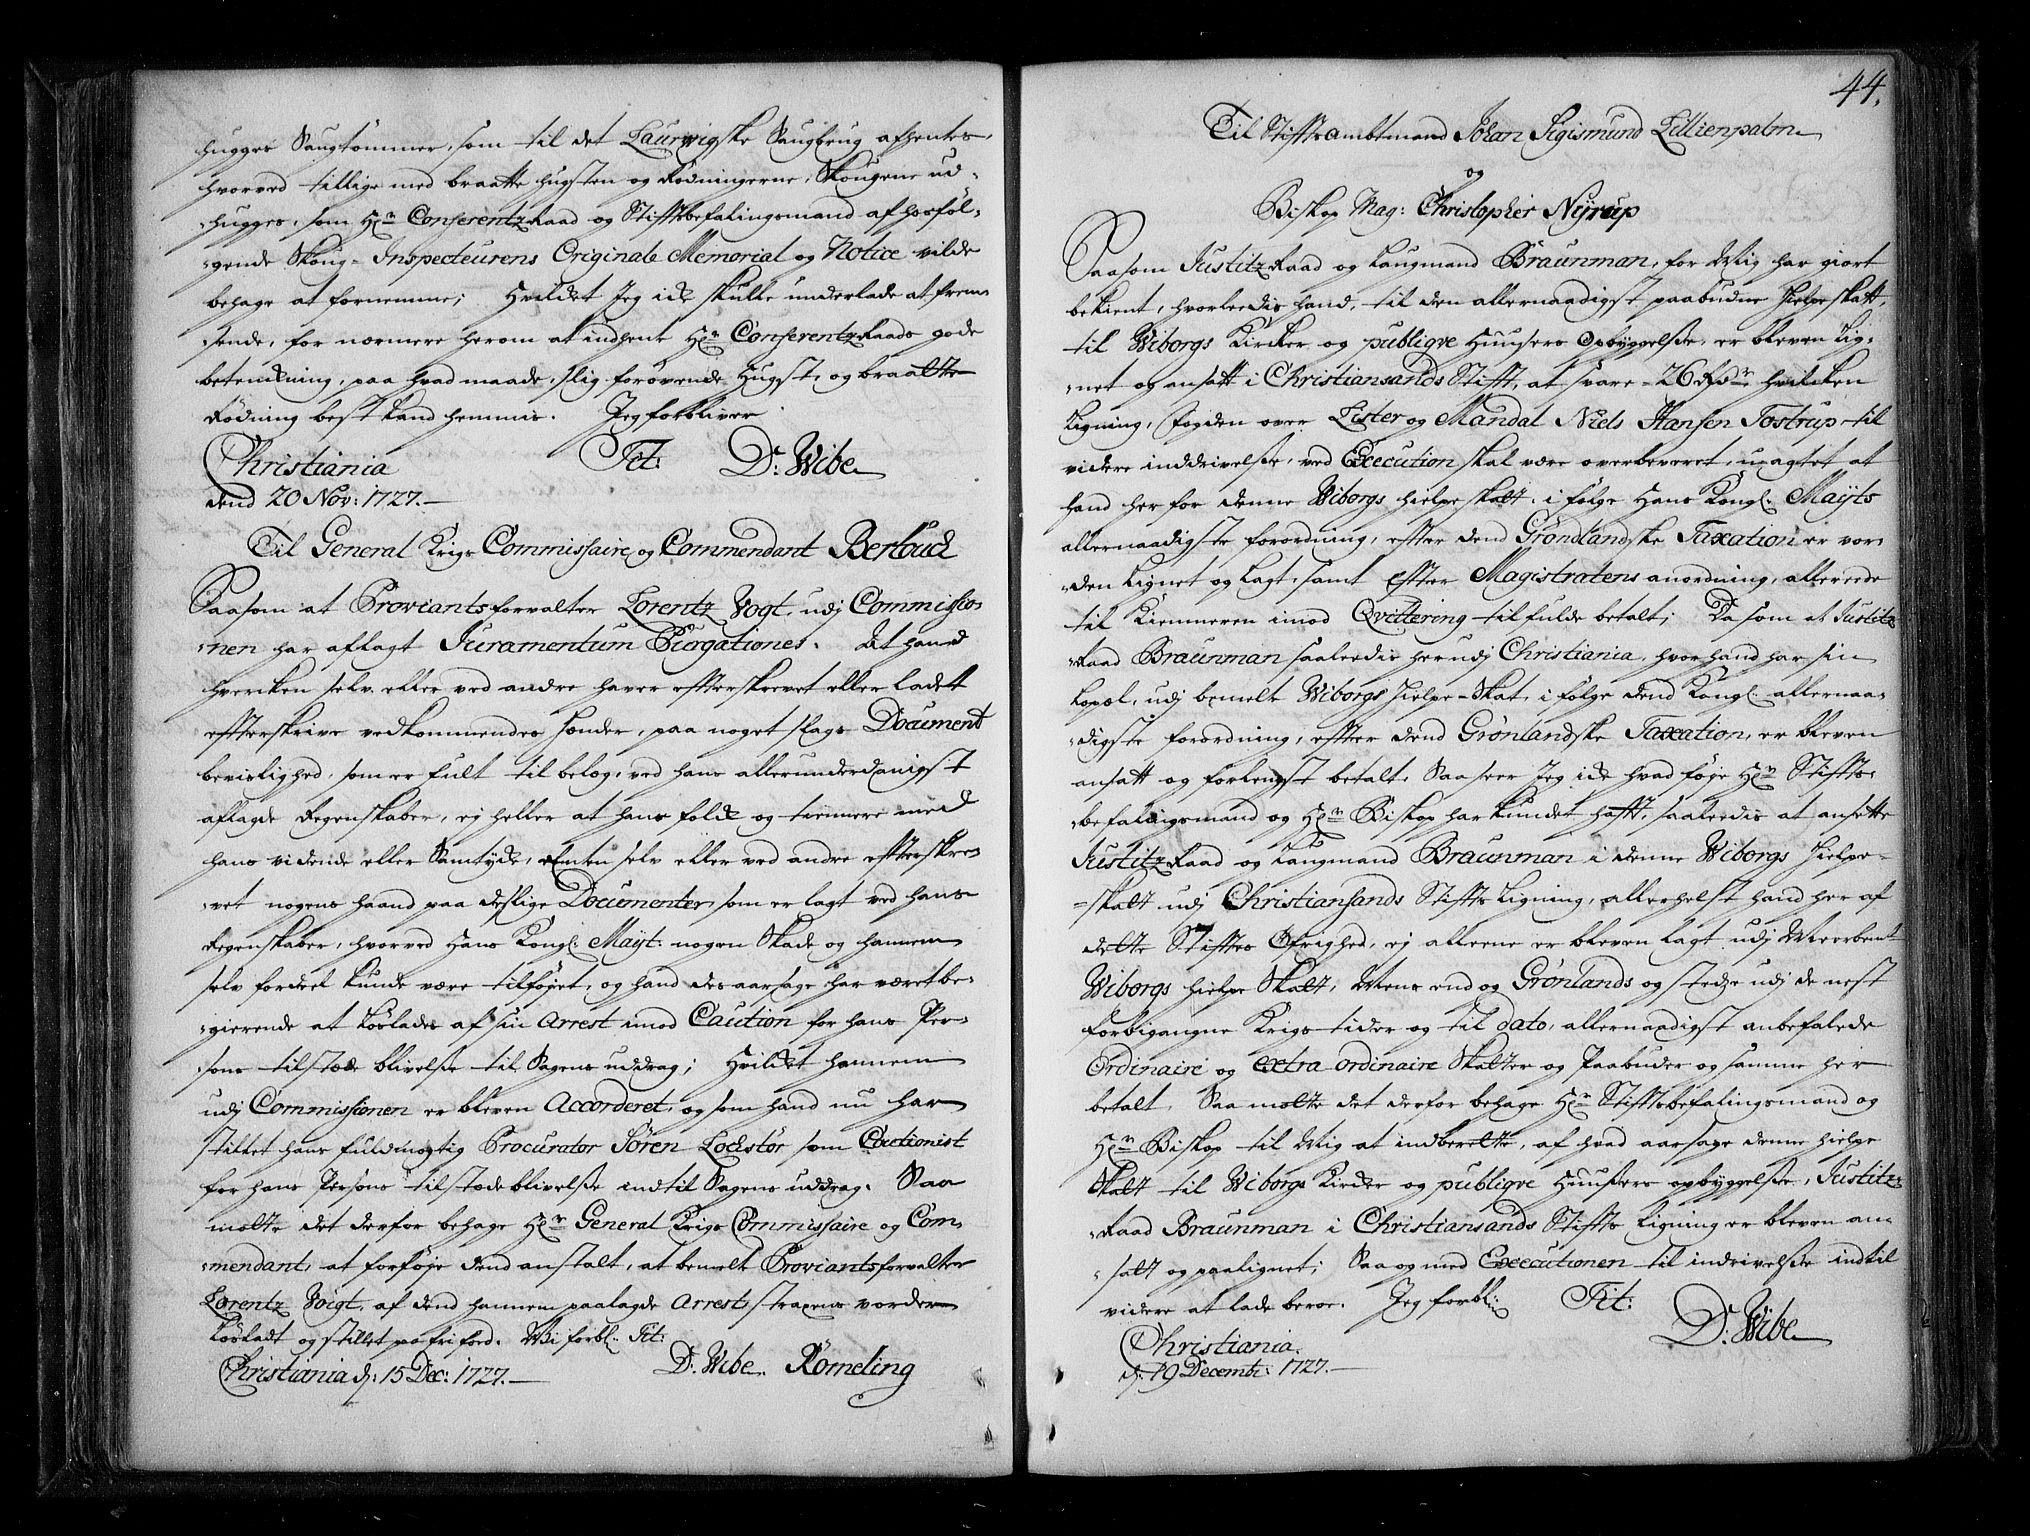 hugges Saugtømmer, som til det Laurwigske Saugbrug afhentes,
hvorved tillige med braatte hugsten og Rødningerne, Skougene ud-
-hugges, som Hr. ConferentzRaad og Stiftsbefalingsmand af hosføl-
-gende Skoug- Inspecteurens Originale Memorial og Notice vilde
behage at fornemme; Hvilket Jeg icke skulle underlade at frem-
-sende, for nærmere herom at indhente Hr. ConferentzRaads gode
betenckning, paa hvad maade, slig forøvende Hugst, og braatte
Rødning best kand hemmis. Jeg forbliver
Christiania Tit: D: Wibe
dend 20 Nov: 1727.
Til General Krigs Commissaire og Commendant Bertouch
Saasom at Proviantsforvalter Lorentz Vogt, udj Commissio-
-nen har aflagt Juramentum Purgationes. At hand
hvercken selv, eller ved andre haver efftterskrevet eller ladett
effterskrive vedkommendes Hænder, paa noget slags Document
bevislighed, som er fult til belæg, ved hans allerunderdanigst
aflagde Regenskaber, ej heller at hans folck og tiennere med
hans vidende eller Samtycke, Enten selv eller ved andre effterskre-
-vet nogens haand paa deslige Documenter, som er lagt ved hans
Regenskaber, hvorved Hans Kongl: Mayt: nogen Skade og hannem
selv fordeel kunde være tilføjet, og hand des aarsage har været be-
-gierende at Løslades af sin Arrest imod Caution for hans Per-
-sons tilstæde blivelsse til Sagens uddrag; Hvilcket hannem
udj Commissionen er bleven Accorderet, og som hand nu har
stillet hans fuldmægtig Procurator Sören Lochstör som Cautionist
for hans Persons tilstædeblivelsse indtil Sagens uddrag. Saa
motte det derfor behage Hr. General Krigs Commissaire og Com-
-mendant, at forføje dend anstalt, at bemelt Proviantsforvalter
Lorentz Voigt, af dend hannem paalagde Arrest, straxens vorder
Løsladt og stillet paa fri fod. Wi forbl: Tit:
Christiania d: 15 Dec: 1727. D: Wibe. Römeling
44.
Til Stiftsambtmand Johan Sigismund Lillienpalm
og
Biskop Mag: Christopher Nyrup
Saasom JustitzRaad og Laugmand Braunman, for Mig har giort
bekient, hvorledis hand, til den allernaadigst paabudne Hielpe skatt,
til Wiborgs Kircker og publiqve Huusers Opbyggelsse, er bleven Lig-
-net og ansatt i Christiansands Stift, at svare 26 Rdr. hvilcken
Ligning, Fogden over Lister og Mandal Niels Hansen Tostrup til
videre inddrivelsse, ved Execution skal være overleveret, uagtet at
hand her for denne Wiborgs hielpe skatt, i følge Hans Kongl: Mayts
allernaadigste forordning, effter dend Grönlandske Taxation er vor-
-den Lignet og Lagt, samt Effter Magistratens anordning, allerede
til Kiemneren imod Qvittering til fulde betalt; Da som at Justitz
Raad Braunman saaledis her udj Christiania, hvor hand har sin
bopæl, udj bemelt Wiborgs Hielpe-Skat, i følge dend Kongl: allernaa-
-digste forordning, effter dend Grönlandske Taxation, er bleven
ansatt og forlengst betalt, Saa seer Jeg icke hvad føje Hr. Stiffts-
-befalingsmand og Hr. Biskop har kundet hafft, saaledis at ansette
JustitzRaad og Laugmand Braunman i denne Wiborgs Hielpe-
-skatt udj Christiansands Stiffts Ligning, allerhelst hand her af
dette Stifftes Øfrighed, ej alleene er bleven lagt udj Meerbemt
Wiborgs hielpe Skatt, Mens end og Grönlands og stedze udj de nest
forbigangne Krigs tider og til dato, allernaadigst anbefalede
Ordinaire og extra ordinaire Skatter og Paabuder og samme her
betalt, Saa motte det derfor behage Hr. Stifftsbefalingsmand og
Hr. Biskop til Mig at indberette, af hvad aarsage denne hielpe
Skatt til Wiborgs Kircker og publiqve Huusers opbyggelsse, Justitz
-Raad Braunman i Christiansands Stiffts Ligning er bleven an-
-satt og paalignet; Saa og med Executionen til indrivelsse indtil
videre at lade beroe. Jeg forbl: Tit:
D: Wibe
Christiania.
d: 19 Decembr: 1727.